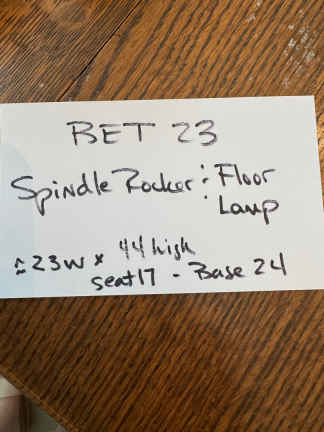 BET 23
Spindle Rocker : Floor
Lamp
≈ 23w x 44 high
seat 17 - Base 24